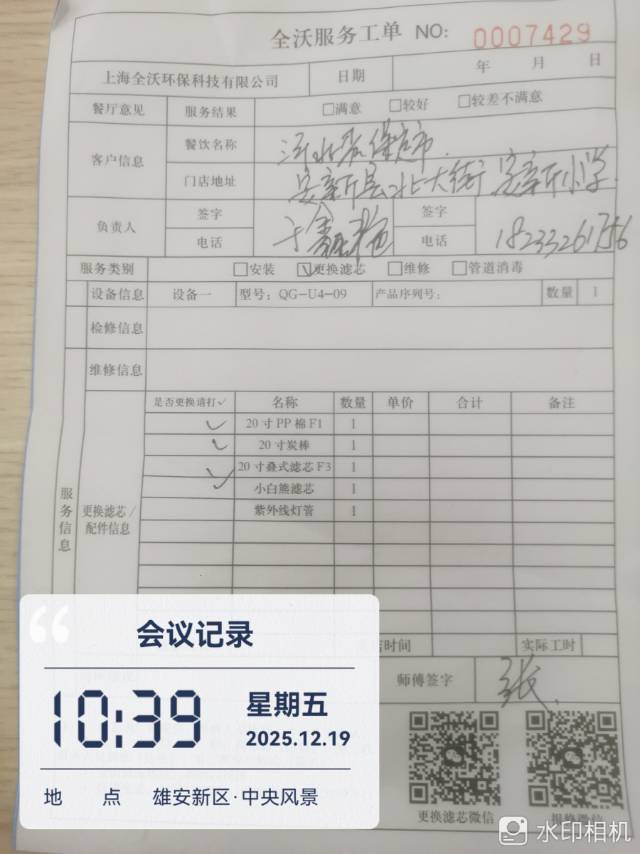 全沃服务工单 NO: 0007429
上海全沃环保科技有限公司 日期 年 月 日
餐厅意见 服务结果 □满意 □较好 □较差不满意
客户信息 餐饮名称 河北 保定市
门店地址 安新县北大街 安新小学
负责人 签字 于 签字
电话 电话 18233261756
服务类别 □安装 ☑更换滤芯 □维修 □管道消毒
设备信息 设备一 型号: QG-U4-09 产品序列号: 数量 1
检修信息
维修信息
服务信息 更换滤芯/配件信息
是否更换请打✓ 名称 数量 单价 合计 备注
✓ 20寸PP棉F1 1
✓ 20寸炭棒 1
✓ 20寸叠式滤芯F3 1
✓ 小白熊滤芯 1
紫外线灯管 1
时间 实际工时
师傅签字 张
更换滤芯微信 微信
会议记录
10:39 星期五
2025.12.19
地 点 雄安新区·中央风景
水印相机